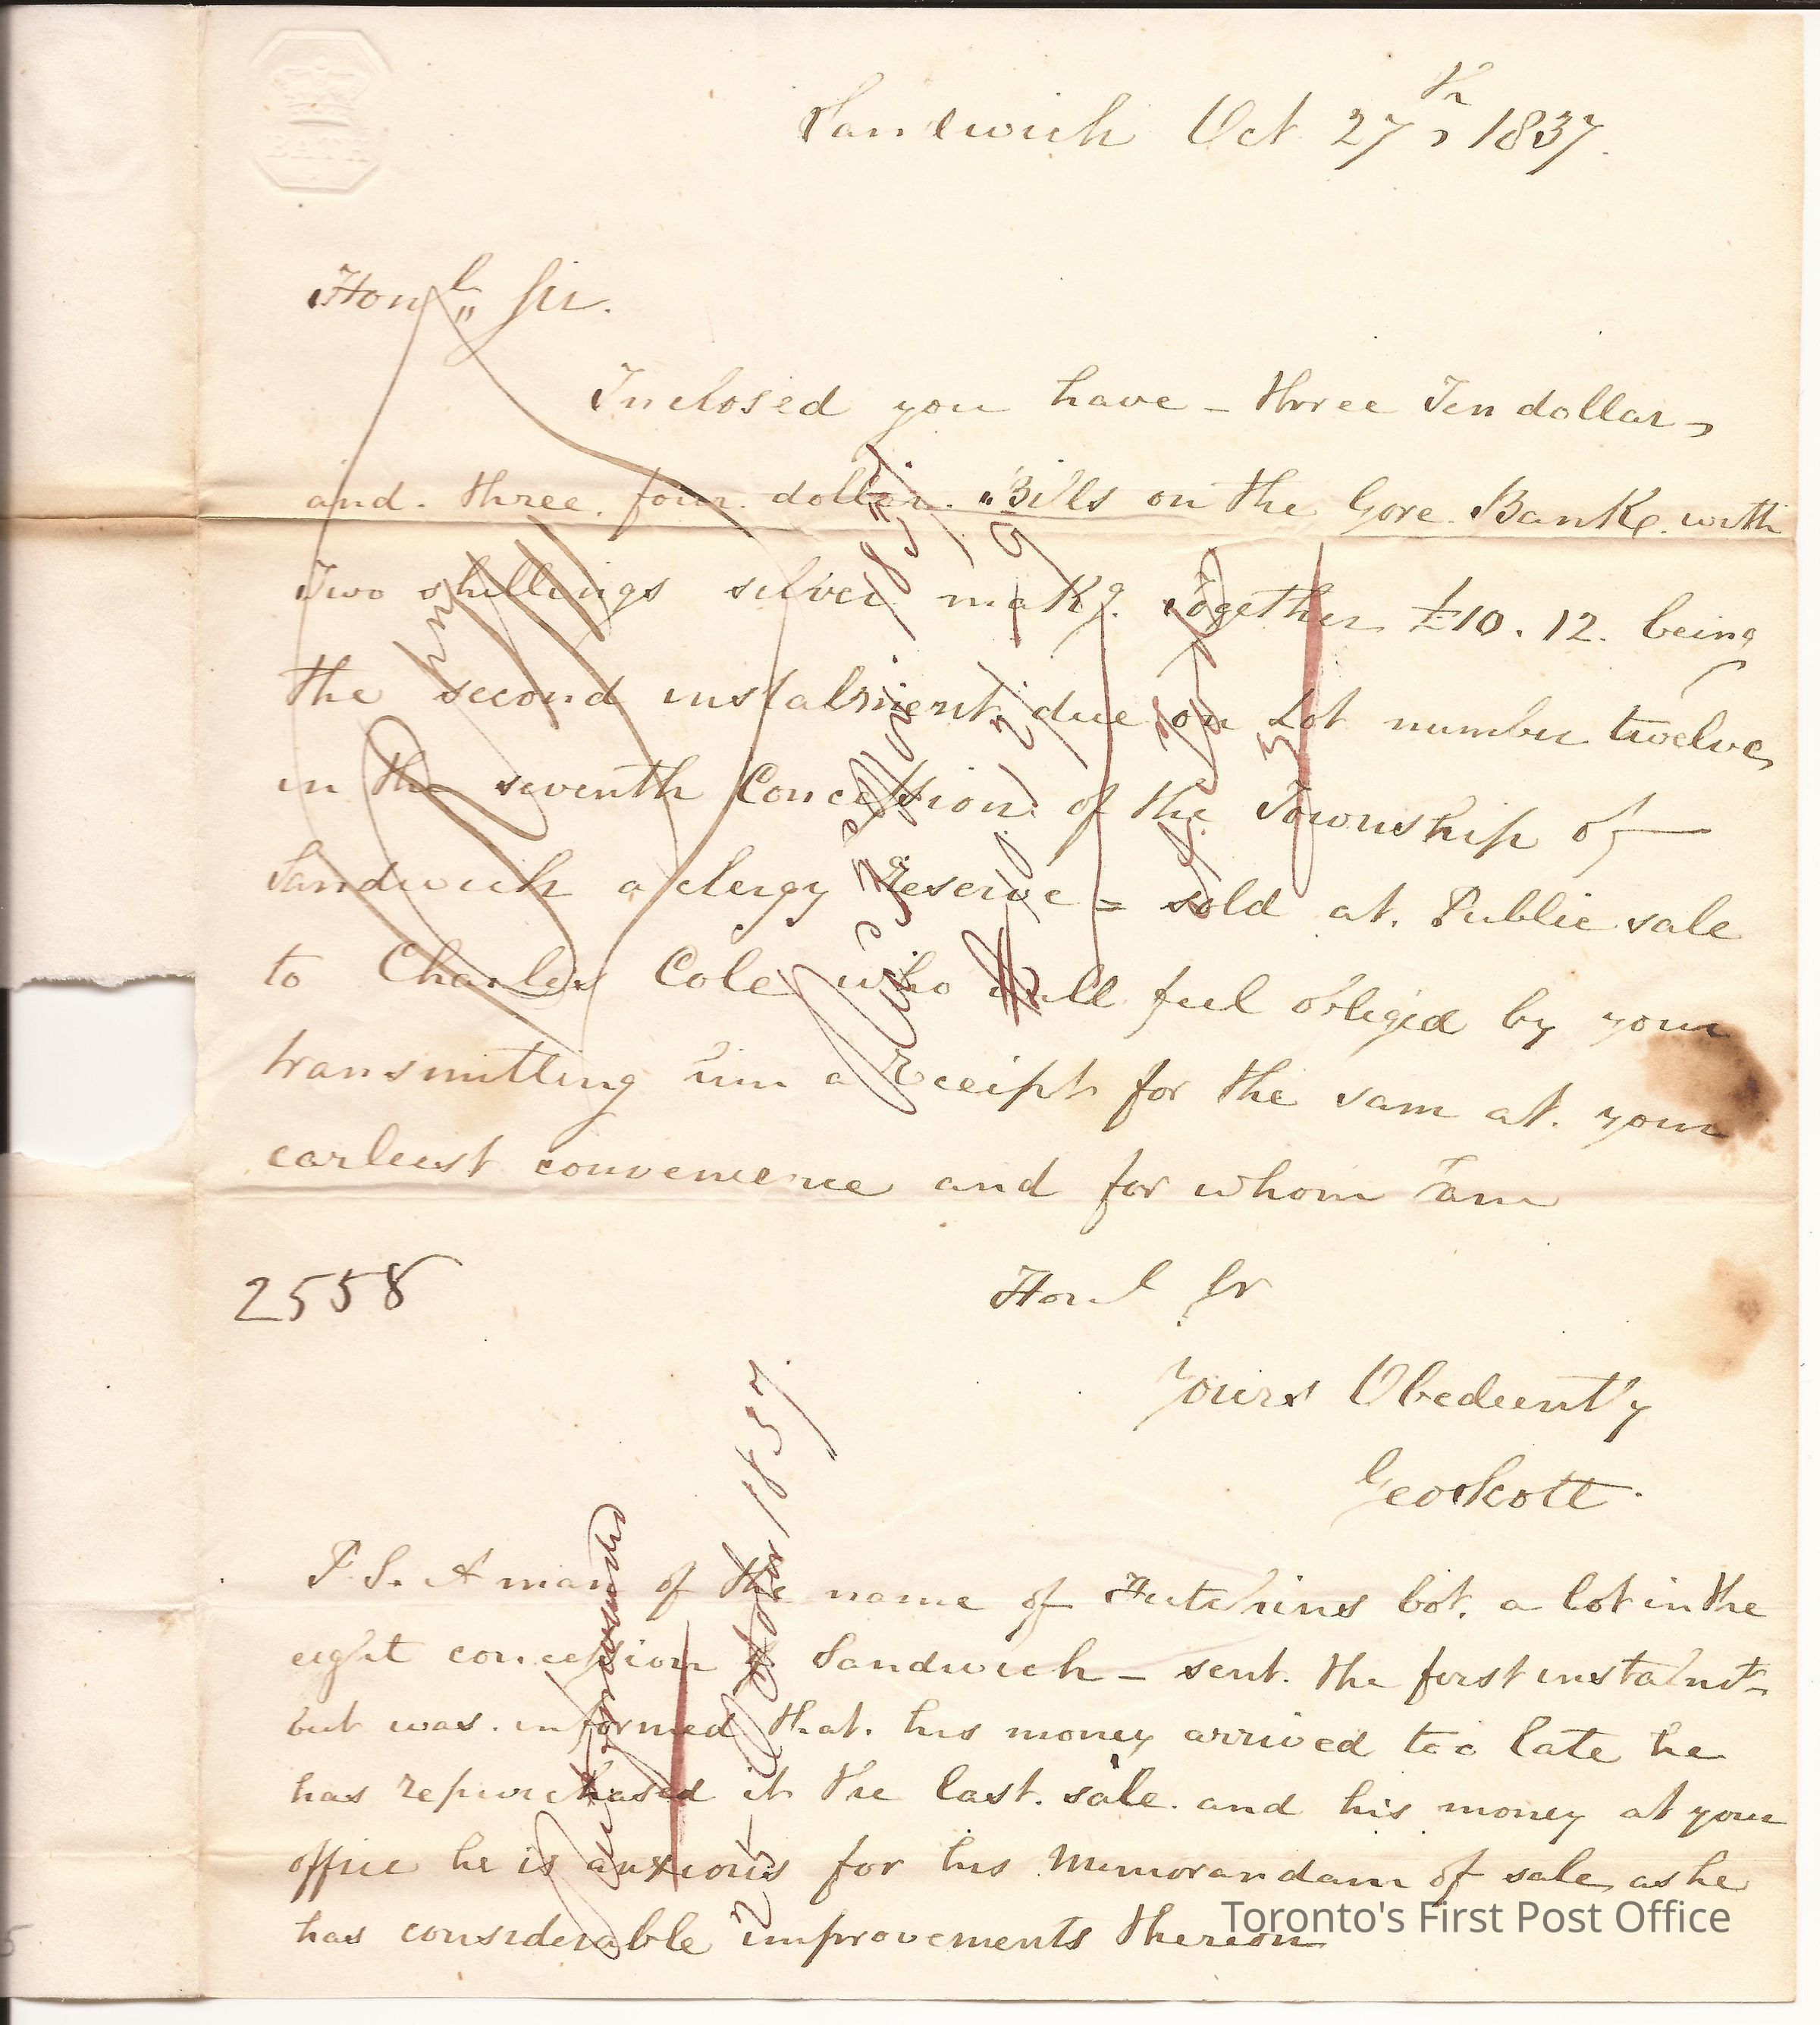 Sandwich Oct 27th, 1837.
Honl,, Sir.
Inclosed you have - three Ten dollar,
and. three. four. dollar. "Bills on the Gore Bank. with
Two shillings silver makg. Together £10. 12. being
the second instalment due on Lot number twelve,
in the seventh Concession of the Township of
Sandwich a clergy Reserve = sold at. Public sale
to Charles Cole who will feel obliged by your
transmitting him a Receipt for the sam at. your
earleest convenience and for whom I am
2558
Honl Sr
Yours Obedeently
Geo Scott.
P.S. A man of the name of Hutchins bot. a lot in the
eight concession of Sandwich - sent. the first instalmt-
but was. informed that. his money arrived too late he
has repurchased it the last. sale. and his money at your
office he is anxious for his Memorandam of sale, as he
has considerable improvements thereon
1837
25 October 1837.
BATH
Toronto's First Post Office